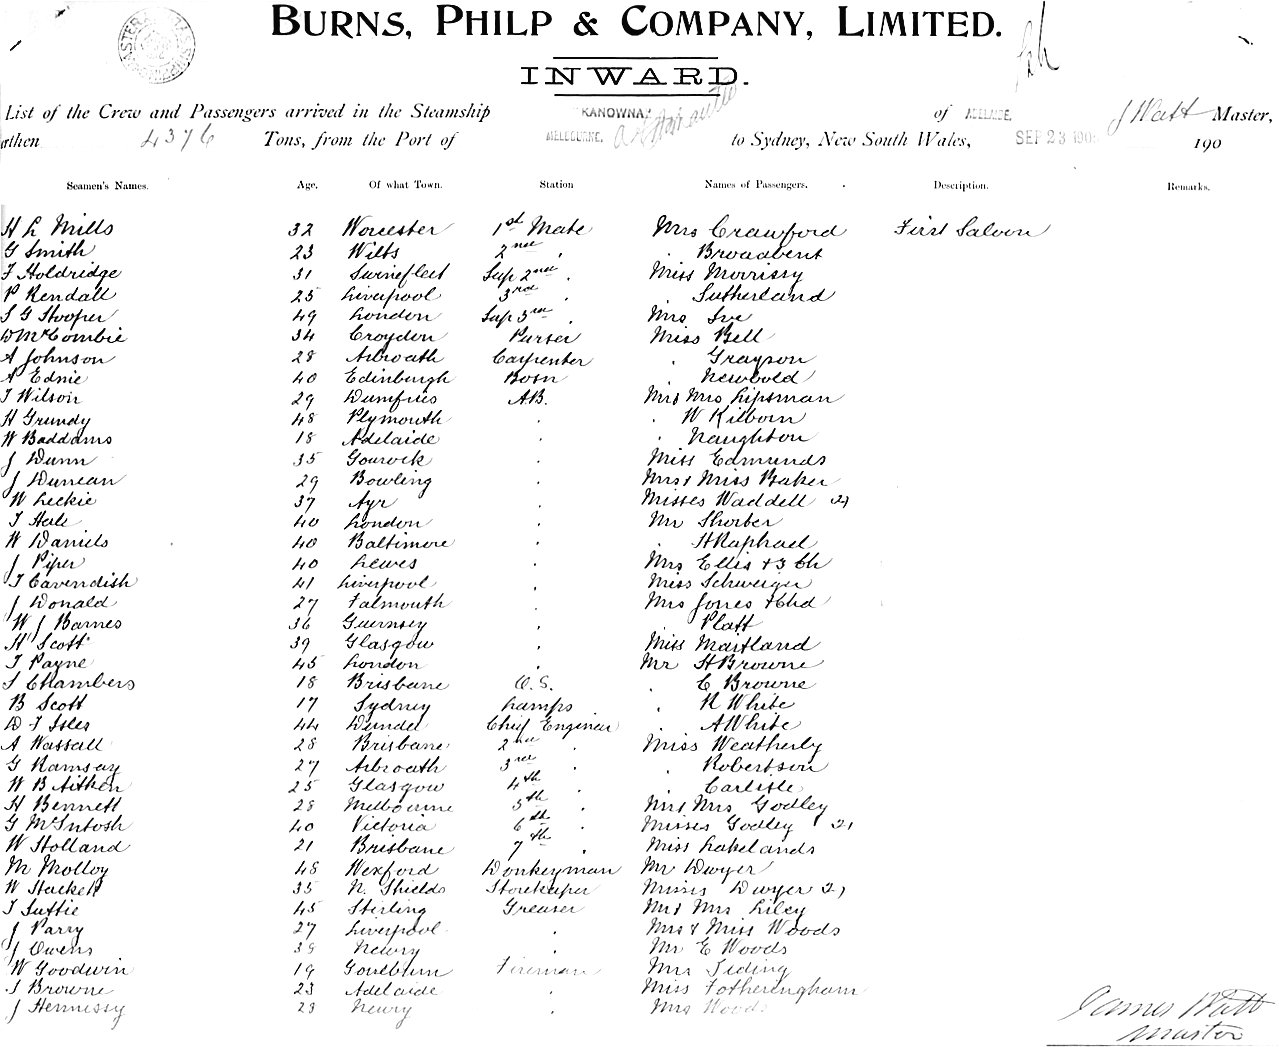 BURNS, PHILP & COMPANY, LIMITED.
INWARD.
List of the Crew and Passengers arrived in the Steamship KANOWNA. of ADELAIDE, J Watt Master,
then 4376 Tons, from the Port of MELBOURNE. to Sydney, New South Wales, SEP 23 190 190
Seamen's Names. Age. Of what Town. Station Names of Passengers. Description. Remarks.
H L Mills 32 Worcester 1st Mate Mrs Crawford First Saloon
G Smith 23 Wilts 2nd " " Broadbent
F Holdridge 31 Surnefleet Sup 2nd " Miss Morrissy
P Kendall 25 Liverpool 3rd " " Sutherland
S G Hooper 49 London Sup 3rd " Mrs Ive
D McCombie 34 Croydon Purser Miss Bell
A Johnson 28 Arbroath Carpenter " Grayson
A Ednie 40 Edinburgh Bosn " Newbold
T Wilson 29 Dumfries A.B. Mr & Mrs Lipsman
H Grundy 48 Plymouth " " W Kilborn
W Baddams 18 Adelaide " " Naughton
J Dunn 35 Gourock " Miss Edmunds
J Duncan 29 Bowling " Mrs & Miss Baker
W Leckie 37 Ayr " Misses Waddell 2)
T Hale 40 London " Mr Shorter
W Daniels 40 Baltimore " " H Raphael
J Piper 40 Lewes " Mrs Ellis + 3 Ch
T Cavendish 41 Liverpool " Miss Schweiger
J Donald 27 Falmouth " Mrs Jones + Chd
W J Barnes 36 Guernsey " " Platt
H Scott 39 Glasgow " Miss Maitland
T Payne 45 London " Mr H Browne
S Chambers 18 Brisbane O.S. " C Browne
B Scott 17 Sydney Lamps " R White
D J Isles 44 Dundee Chief Engineer " A White
A Wassall 28 Brisbane 2nd " Miss Weatherly
G Ramsay 27 Arbroath 3rd " " Robertson
W B Aitken 25 Glasgow 4th " " Carlisle
H Bennett 28 Melbourne 5th " Mr & Mrs Godley
G McIntosh 40 Victoria 6th " Misses Godley 2)
W Holland 21 Brisbane 7th " Miss Lakelands
M Molloy 48 Wexford Donkeyman Mr Dwyer
W Hackett 35 N. Shields Storekeeper Misses Dwyer 2)
T Suttie 45 Stirling Greaser Mr & Mrs Liley
J Parry 27 Liverpool " Mrs & Miss Woods
J Owens 38 Newry " Mr E Woods
W Goodwin 19 Goulburn Fireman Mrs Tiding
S Browne 23 Adelaide " Miss Fotheringham
J Hennessy 28 Newry " Mrs Woods
James Watt
Master